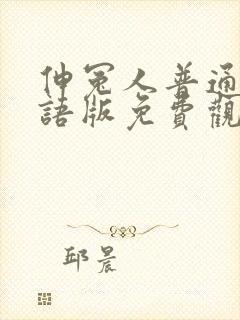 伸冤人普通
語版免費觀
邱晨